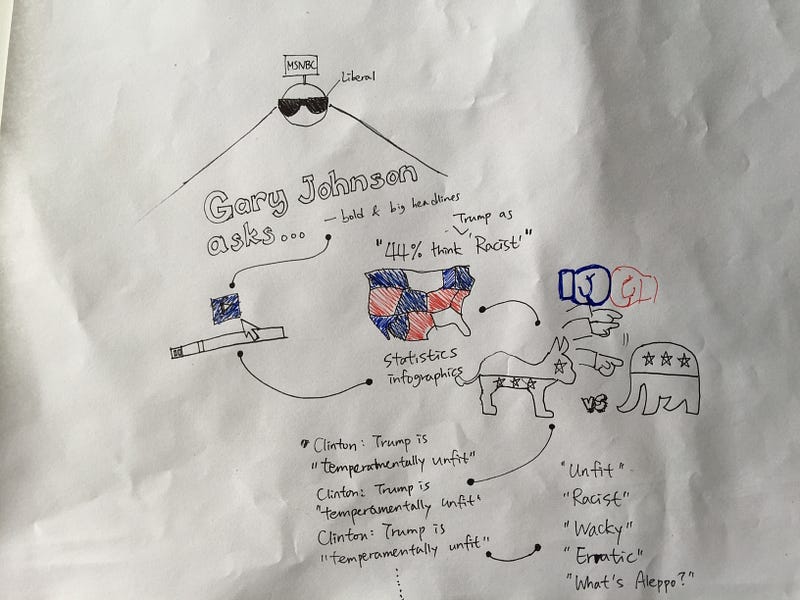 MSNBC
Liberal
Gary Johnson
asks...
— bold & big headlines
Trump as
"44% think 'Racist'"
Statistics
infographics
vs
"Clinton: Trump is
"temperatmentally unfit"
Clinton: Trump is
"temperamentally unfit"
Clinton: Trump is
"temperamentally unfit"
"Unfit"
"Racist"
"Wacky"
"Erratic"
"What's Aleppo?"